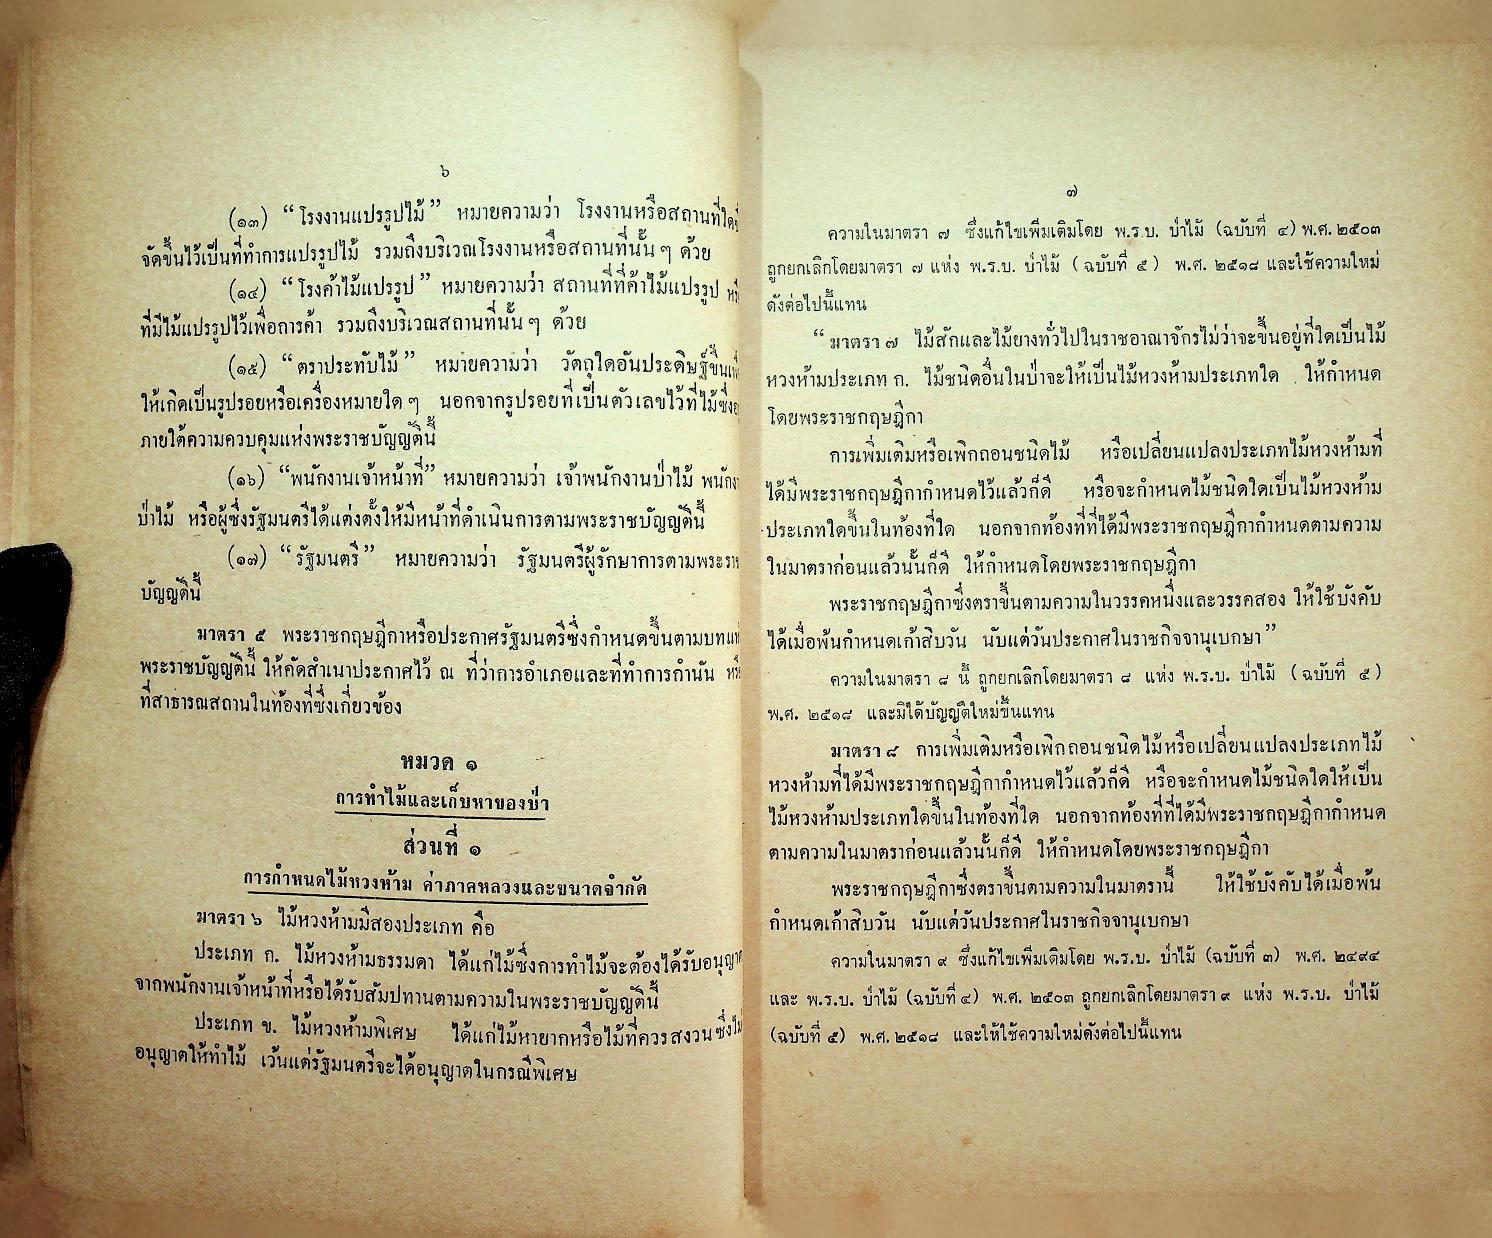 ๖
(๑๓) “โรงงานแปรรูปไม้” หมายความว่า โรงงานหรือสถานที่ใด
จัดขึ้นไว้เป็นที่ทำการแปรรูปไม้ รวมถึงบริเวณโรงงานหรือสถานที่นั้น ๆ ด้วย
(๑๔) “โรงค้าไม้แปรรูป” หมายความว่า สถานที่ที่ค้าไม้แปรรูป
ที่มีไม้แปรรูปไว้เพื่อการค้า รวมถึงบริเวณสถานที่นั้น ๆ ด้วย
(๑๕) “ตราประทับไม้” หมายความว่า วัตถุใดอันประดิษฐ์ขึ้น
ให้เกิดเป็นรูปรอยหรือเครื่องหมายใด ๆ นอกจากรูปรอยที่เป็นตัวเลขไว้ที่ไม้ซึ่ง
ภายใต้ความควบคุมแห่งพระราชบัญญัตินี้
(๑๖) “พนักงานเจ้าหน้าที่” หมายความว่า เจ้าพนักงานป่าไม้
ป่าไม้ หรือผู้ซึ่งรัฐมนตรีได้แต่งตั้งให้มีหน้าที่ดำเนินการตามพระราชบัญญัตินี้
(๑๗) “รัฐมนตรี” หมายความว่า รัฐมนตรีผู้รักษาการตามพระราช
บัญญัตินี้
มาตรา ๕ พระราชกฤษฎีกาหรือประกาศรัฐมนตรีซึ่งกำหนดขึ้นตามบท
พระราชบัญญัตินี้ ให้คัดสำเนาประกาศไว้ ณ ที่ว่าการอำเภอและที่ทำการกำนัน
ที่สาธารณสถานในท้องที่ซึ่งเกี่ยวข้อง
หมวด ๑
การทำไม้และเก็บหาของป่า
ส่วนที่ ๑
การกำหนดไม้หวงห้าม ค่าภาคหลวงและขนาดจำกัด
มาตรา ๖ ไม้หวงห้ามมีสองประเภท คือ
ประเภท ก. ไม้หวงห้ามธรรมดา ได้แก่ไม้ซึ่งการทำไม้จะต้องได้รับอนุญาต
จากพนักงานเจ้าหน้าที่หรือได้รับสัมปทานตามความในพระราชบัญญัตินี้
ประเภท ข. ไม้หวงห้ามพิเศษ ได้แก่ไม้หายากหรือไม้ที่ควรสงวนซึ่งไม่
อนุญาตให้ทำไม้ เว้นแต่รัฐมนตรีจะได้อนุญาตในกรณีพิเศษ
๗
ความในมาตรา ๗ ซึ่งแก้ไขเพิ่มเติมโดย พ.ร.บ. ป่าไม้ (ฉบับที่ ๔) พ.ศ. ๒๕๐๓
ถูกยกเลิกโดยมาตรา ๗ แห่ง พ.ร.บ. ป่าไม้ ( ฉบับที่ ๕ ) พ.ศ. ๒๕๑๘ และใช้ความใหม่
ดังต่อไปนี้แทน
“ มาตรา ๗ ไม้สักและไม้ยางทั่วไปในราชอาณาจักรไม่ว่าจะขึ้นอยู่ที่ใดเป็นไม้
หวงห้ามประเภท ก. ไม้ชนิดอื่นในป่าจะให้เป็นไม้หวงห้ามประเภทใด ให้กำหนด
โดยพระราชกฤษฎีกา
การเพิ่มเติมหรือเพิกถอนชนิดไม้ หรือเปลี่ยนแปลงประเภทไม้หวงห้ามที่
ได้มีพระราชกฤษฎีกากำหนดไว้แล้วก็ดี หรือจะกำหนดไม้ชนิดใดเป็นไม้หวงห้าม
ประเภทใดขึ้นในท้องที่ใด นอกจากท้องที่ที่ได้มีพระราชกฤษฎีกากำหนดตามความ
ในมาตราก่อนแล้วนั้นก็ดี ให้กำหนดโดยพระราชกฤษฎีกา
พระราชกฤษฎีกาซึ่งตราขึ้นตามความในวรรคหนึ่งและวรรคสอง ให้ใช้บังคับ
ได้เมื่อพ้นกำหนดเก้าสิบวัน นับแต่วันประกาศในราชกิจจานุเบกษา”
ความในมาตรา ๘ นี้ ถูกยกเลิกโดยมาตรา ๘ แห่ง พ.ร.บ. ป่าไม้ ( ฉบับที่ ๕ )
พ.ศ. ๒๕๑๘ และมิได้บัญญัติใหม่ขึ้นแทน
มาตรา ๘ การเพิ่มเติมหรือเพิกถอนชนิดไม้หรือเปลี่ยนแปลงประเภทไม้
หวงห้ามที่ได้มีพระราชกฤษฎีกากำหนดไว้แล้วก็ดี หรือจะกำหนดไม้ชนิดใดให้เป็น
ไม้หวงห้ามประเภทใดขึ้นในท้องที่ใด นอกจากท้องที่ที่ได้มีพระราชกฤษฎีกากำหนด
ตามความในมาตราก่อนแล้วนั้นก็ดี ให้กำหนดโดยพระราชกฤษฎีกา
พระราชกฤษฎีกาซึ่งตราขึ้นตามความในมาตรานี้ ให้ใช้บังคับได้เมื่อพ้น
กำหนดเก้าสิบวัน นับแต่วันประกาศในราชกิจจานุเบกษา
ความในมาตรา ๙ ซึ่งแก้ไขเพิ่มเติมโดย พ.ร.บ. ป่าไม้ (ฉบับที่ ๓) พ.ศ. ๒๔๙๔
และ พ.ร.บ. ป่าไม้ (ฉบับที่ ๔) พ.ศ. ๒๕๐๓ ถูกยกเลิกโดยมาตรา ๙ แห่ง พ.ร.บ. ป่าไม้
(ฉบับที่ ๕) พ.ศ. ๒๕๑๘ และให้ใช้ความใหม่ดังต่อไปนี้แทน